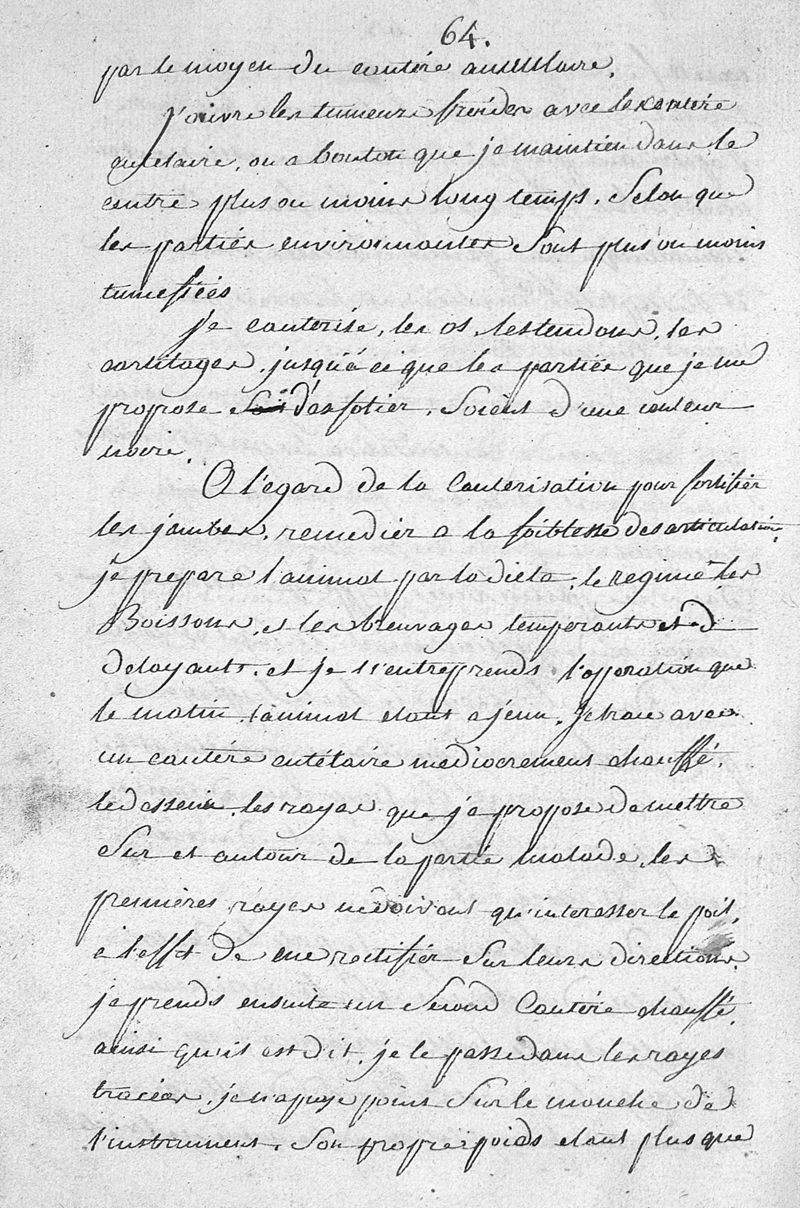 64.
par le moyen du cautére
j'ouvre les tumeurs froides avec le cautére
cutelaire, ou a bouton que je maintien dans le
centre plus ou moins long temps, Selon que
les parties environnantes Sont plus ou moins
tumefiées
Je cauterise, les os, les tendons, les
cartilages, jusqu'a ce que les parties que je me
propose d'exfolier, Soient d'une couleur
noire.
A l'egard de la Cauterisation pour fortifier
les jambes, remedier a la foiblesse des articulations,
je prepare l'animal par la diete, le regime les
Boissons, et les breuvages temperants et
delayants, et je n'entreprends l'operation que
le matin, l'animal etant a jeun, Je trace avec
un cautére cutélaire mediocrement chauffé,
le dessein, les rayes que je propose de mettre
Sur et autour de la partie malade, les
premières rayes ne doivent qu'interesser le poil,
a l'effet de me rectifier Sur leurs directions
je prends ensuite un Second Cautére chauffé,
ainsi qu'il est dit, je le passe dans les rayes
tracées, je n'apuye point Sur le manche de
l'instrument, Son propre poids etant plus que